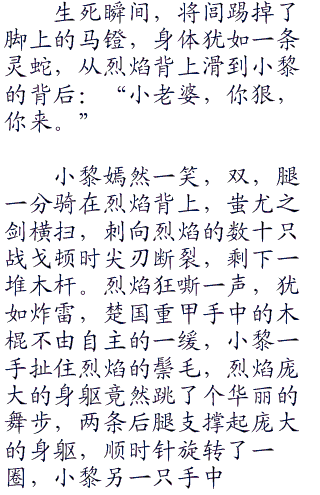 生死瞬间，将闾踢掉了
脚上的马镫，身体犹如一条
灵蛇，从烈焰背上滑到小黎
的背后：“小老婆，你狠，
你来。”
小黎嫣然一笑，双，腿
一分骑在烈焰背上，蚩尤之
剑横扫，刺向烈焰的数十只
战戈顿时尖刃断裂，剩下一
堆木杆。烈焰狂嘶一声，犹
如炸雷，楚国重甲手中的木
棍不由自主的一缓，小黎一
手扯住烈焰的鬃毛，烈焰庞
大的身躯竟然跳了个华丽的
舞步，两条后腿支撑起庞大
的身躯，顺时针旋转了一
圈，小黎另一只手中